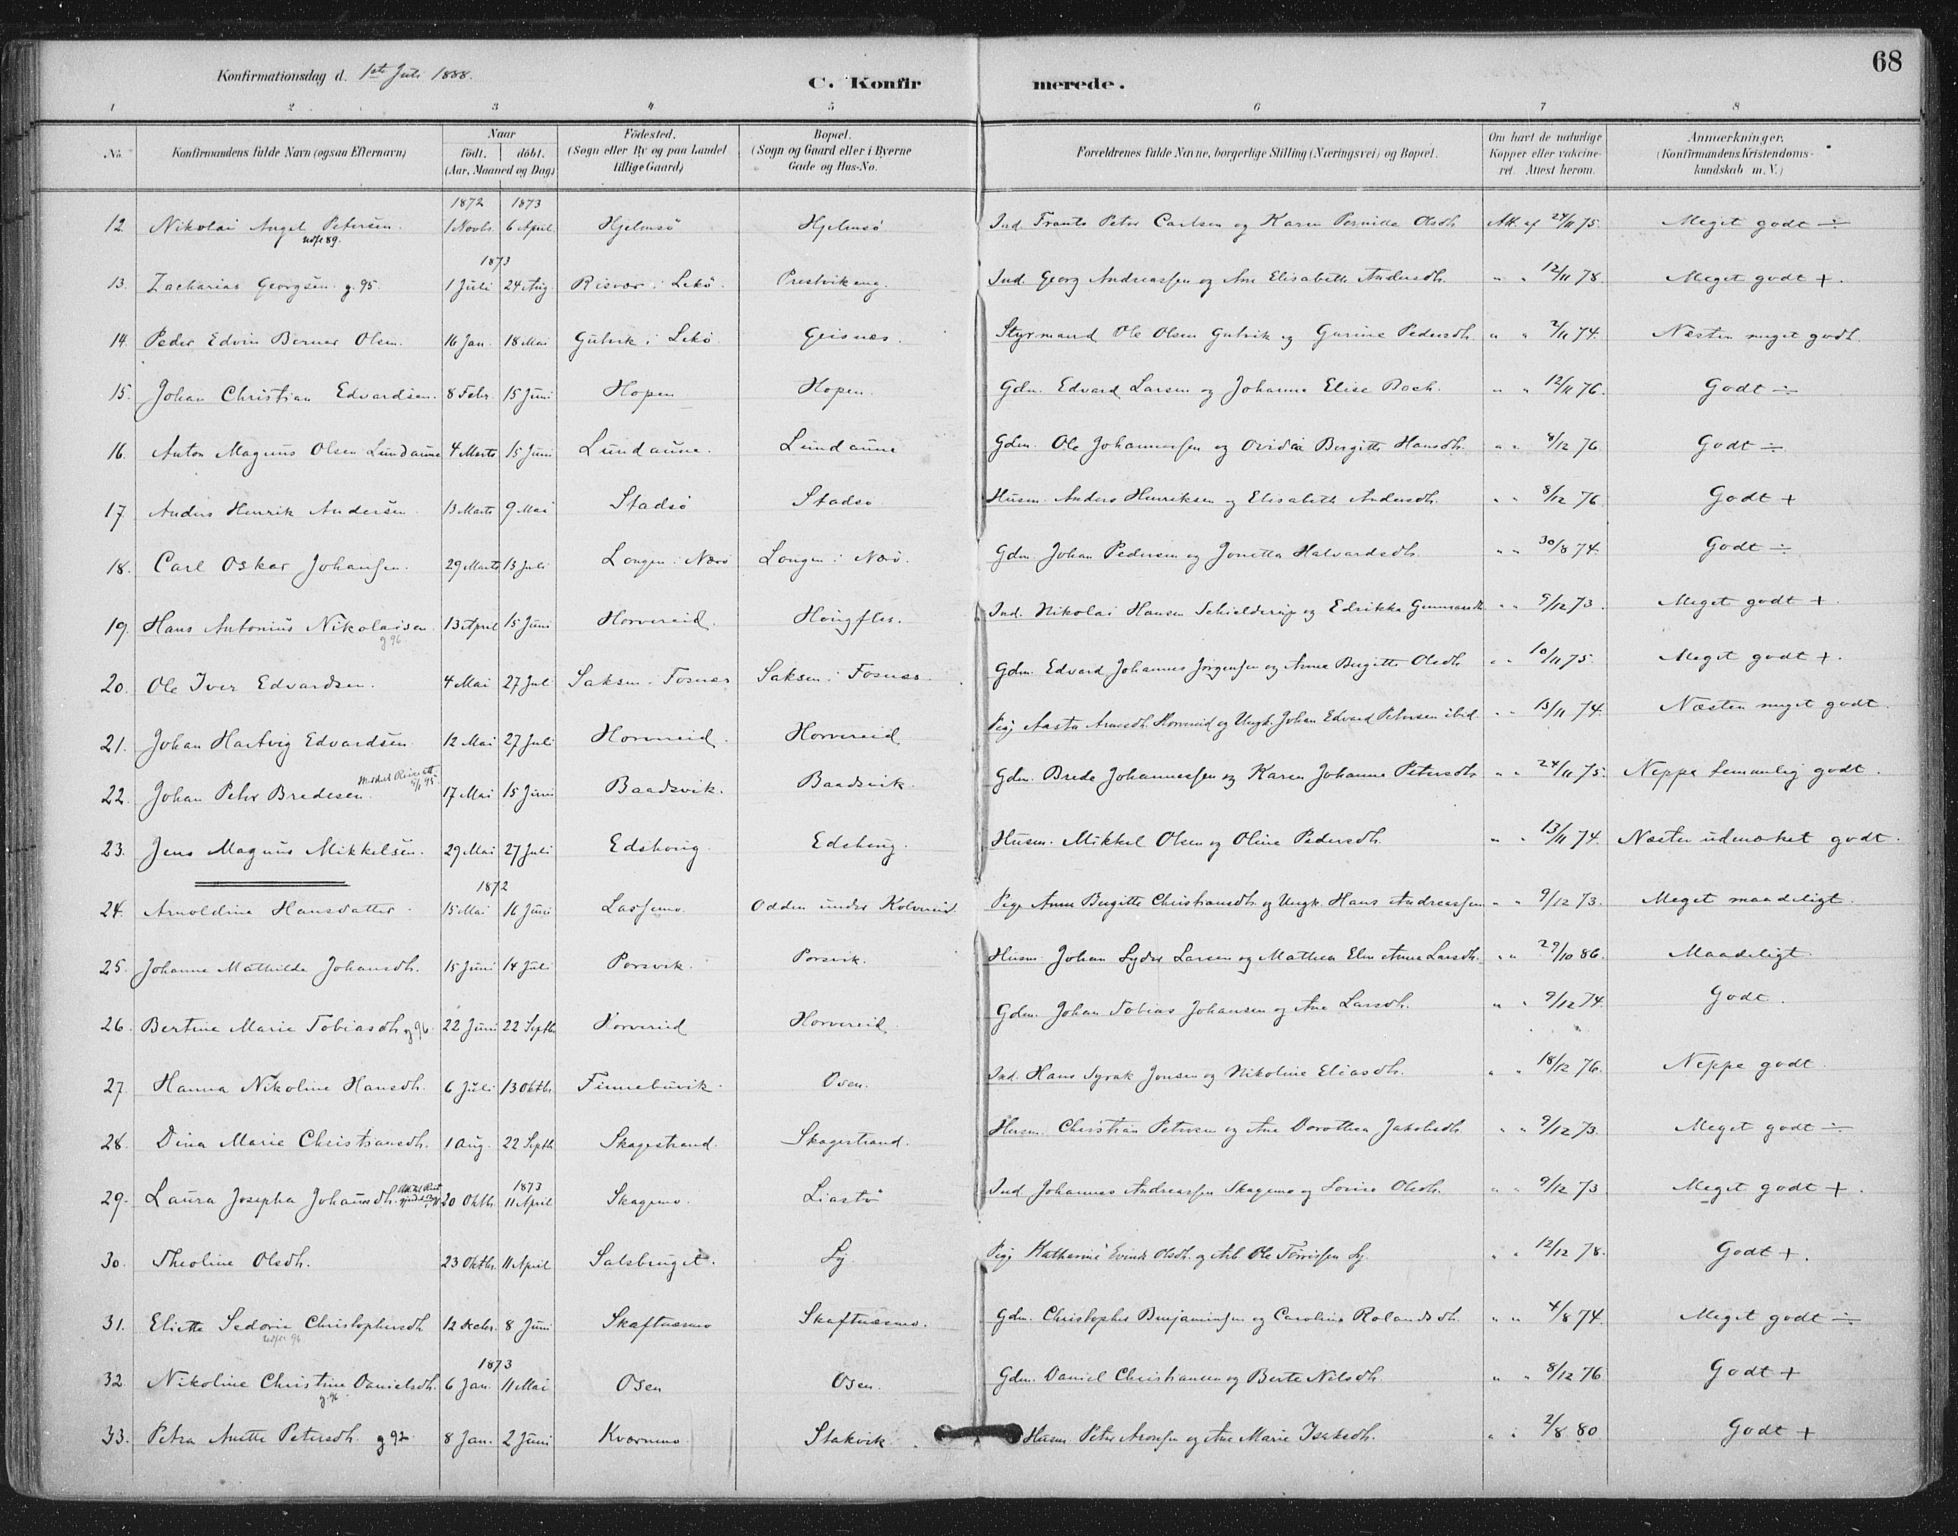 Konfirmationsdag d. 1ste Juli 1888.
C. Konfirmerede.
68
1 2 3 4 5 6 7 8
No. Konfirmandens fulde Navn (ogsaa Efternavn) Naar födt. döbt. (Aar, Maaned og Dag) Födested. (Sogn eller By og paa Landet tillige Gaard) Bopæl. (Sogn og Gaard eller i Byerne Gade og Hus-No. Forældrenes fulde Navne, borgerlige Stilling (Næringsvei) og Bopæl. Om havt de naturlige Kopper eller vakcineret. Attest herom. Anmærkninger. (Konfirmandens Kristendomskundskab m. V.)
1872 1873
12 Nikolai Angel Petersen. 1 Novbr. 6 April Hjelmsö Hjelmsö Ind. Frants Peter Carlsen og Karen Pernille Olsdtr. Att. af 24/11 75. Meget godt ÷
1873
13. Zacharias Georgsen. g. 95. 1 Juli 24 Aug. Risvær i Lekö. Prestvikeng. Ind. Georg Andreassen og Ane Elisabeth Andersdtr. " " 12/11 78 Meget godt +.
14. Peder Edvin Berner Olsen. 16 Jan. 18 Mai Gutvik i Lekö. Geisnes. Styrmand Ole Olsen Gutvik og Gurine Pedersdtr. " " 2/11 74. Næsten meget godt.
15. Johan Christian Edvardsen. 8 Febr. 15 Juni Hopen Hopen. Gdm. Edvard Larsen og Johanna Elise Bach. " " 12/11 76. Godt ÷
16. Anton Magnus Olsen Lundaune 4 Marts 15 Juni Lundaune. Lundaune Gdm. Ole Johannessen og Birgitte Hansdtr. " " 8/12 76. Godt ÷
17 Anders Henrik Andersen 13 Marts 9 Mai Stadsö Stadsö Husm. Anders Henriksen og Elisabeth Andersdtr. " " 8/12 76 Godt +
18. Carl Oskar Johansen. 29 Marts 13 Juli Longen i Nærö Longen i Nærö. Gdm. Johan Pedersen og Jonetta Halvardsdtr. " " 30/8 74. Godt ÷
19. Hans Antonius Nikolaisen. g 96 13 April 15 Juni Horvereid. Höingfles. Ind. Nikolai Hansen Schielderup og Edrikka " " 9/12 73. Meget godt +.
20. Ole Iver Edvardsen. 4 Mai 27 Juli Saksen i Fosnæs Saksen i Fosnæs Gdm. Edvard Johannes Jörgensen og Anne Birgitte Olsdtr. " " 10/11 75. Meget godt +.
21. Johan Hartvig Edvardsen. 12 Mai 27 Juli Horvereid. Horvereid Pige Aasta Horvereid og Ungk. Johan Edvard Petersen ibid. " " 13/11 74. Næsten meget godt.
22. Johan Peter Bredesen. 17 Mai 15 Juni Baadsvik. Baadsvik. Gdm. Brede Johannessen og Karen Johanna Petersdtr. " " 24/11 75. Neppe temmelig godt.
23. Jens Magnus Mikkelsen. 29 Mai 27 Juli Edshoug Edshoug. Husm. Mikkel Olsen og Oline Pedersdtr. " " 13/11 74. Næsten udmærket godt.
1872
24. Arnoldine Hansdatter. 15 Mai 16 Juni Lassemo. Odden under Kolvereid. Pige Anne Birgitte Christiansdtr. og Ungk. Hans Andreassen " " 9/12 73. Meget maadeligt.
25. Johanna Mathilde Johansdtr. 15 Juni 14 Juli Porsvik. Porsvik. Husm. Johan Larsen og Mathea Anna Larsdtr. " " 29/10 86. Maadeligt.
26. Bertine Marie Tobiasdtr. g 96. 22 Juni 22 Septbr Horvereid Horvereid. Gdm. Johan Tobias Johansen og Ane Larsdtr. " " 9/12 74. Godt.
27. Hanna Nikoline Hansdtr. 6 Juli 13 Oktbr. Finnebuvik. Osen. Ind. Hans Syrak Jonsen og Nikoline Eliasdtr. " " 18/12 76. Neppe godt
28. Dina Marie Christiansdtr. 1 Aug. 22 Septbr Skagestrand. Skagestrand. Husm. Christian Petersen og Ane Dorothea Jakobsdtr. " " 9/12 73. Meget godt ÷
1873
29. Laura Josepha Johansdtr. 20 Oktbr. 11 April Skagemo. Liastö Ind. Johannes Andreassen Skagemo og Lovise Olsdtr. " " 9/12 73 Meget godt +.
30. Theoline Olsdtr. 23 Oktbr. 11 April Salsbruget. Ly. Pige Katharine Olsdtr. og Arb. Ole Ly. " " 12/12 78. Godt +.
31. Eliette Sedovie Christophersdtr 12 Decbr. 8 Juni Skaftnesmo Skaftnesmo. Gdm. Christopher Benjaminsen og Caroline Rolandsdtr. " " 4/8 74. Meget godt ÷
1873
32. Nikoline Christine Danielsdtr. g 96 6 Jan. 11 Mai Osen Osen. Gdm. Daniel Christiansen og Berte Nilsdtr. " " 8/12 76 Godt +
33. Petra Anette Petersdtr. g 92 8 Jan. 2 Juni Kværnmo. Stakvik. Husm. Peter Aronsen og Ane Marie Isaksdtr. " " 2/8 80 Godt +